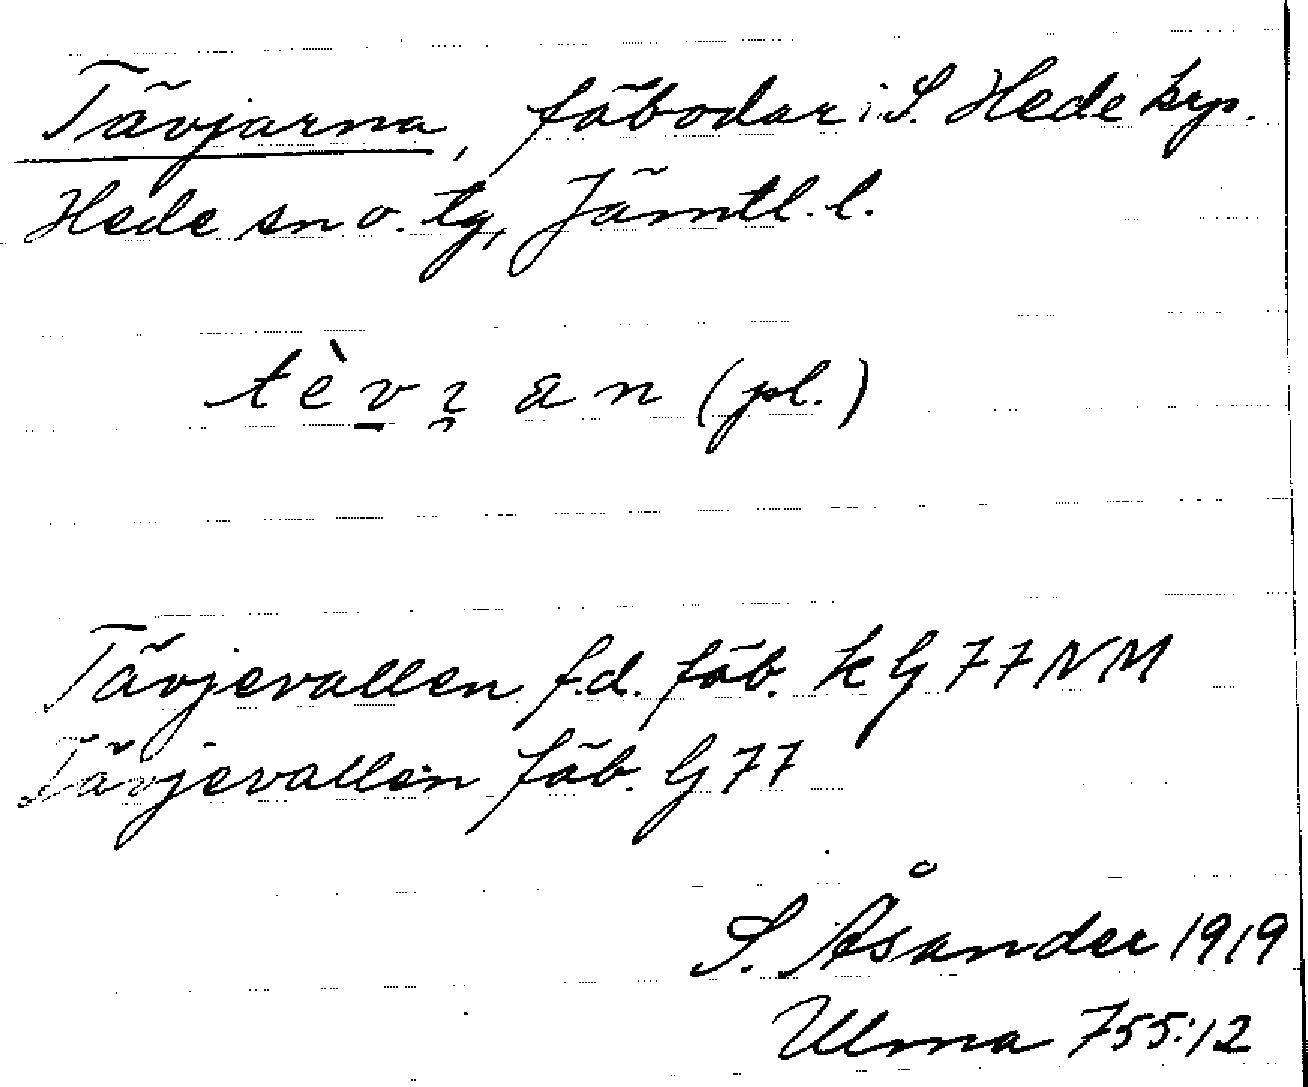 Tävjarna, fäbodar i S. Hede krp.
Hede sn o. tg, Jämtl. l.
(pl.)
Tävjevallen f.d. fäb. k G 77 NM
Tävjevallen fäb. G 77
S. Åsander 1919
Ulma 755:12